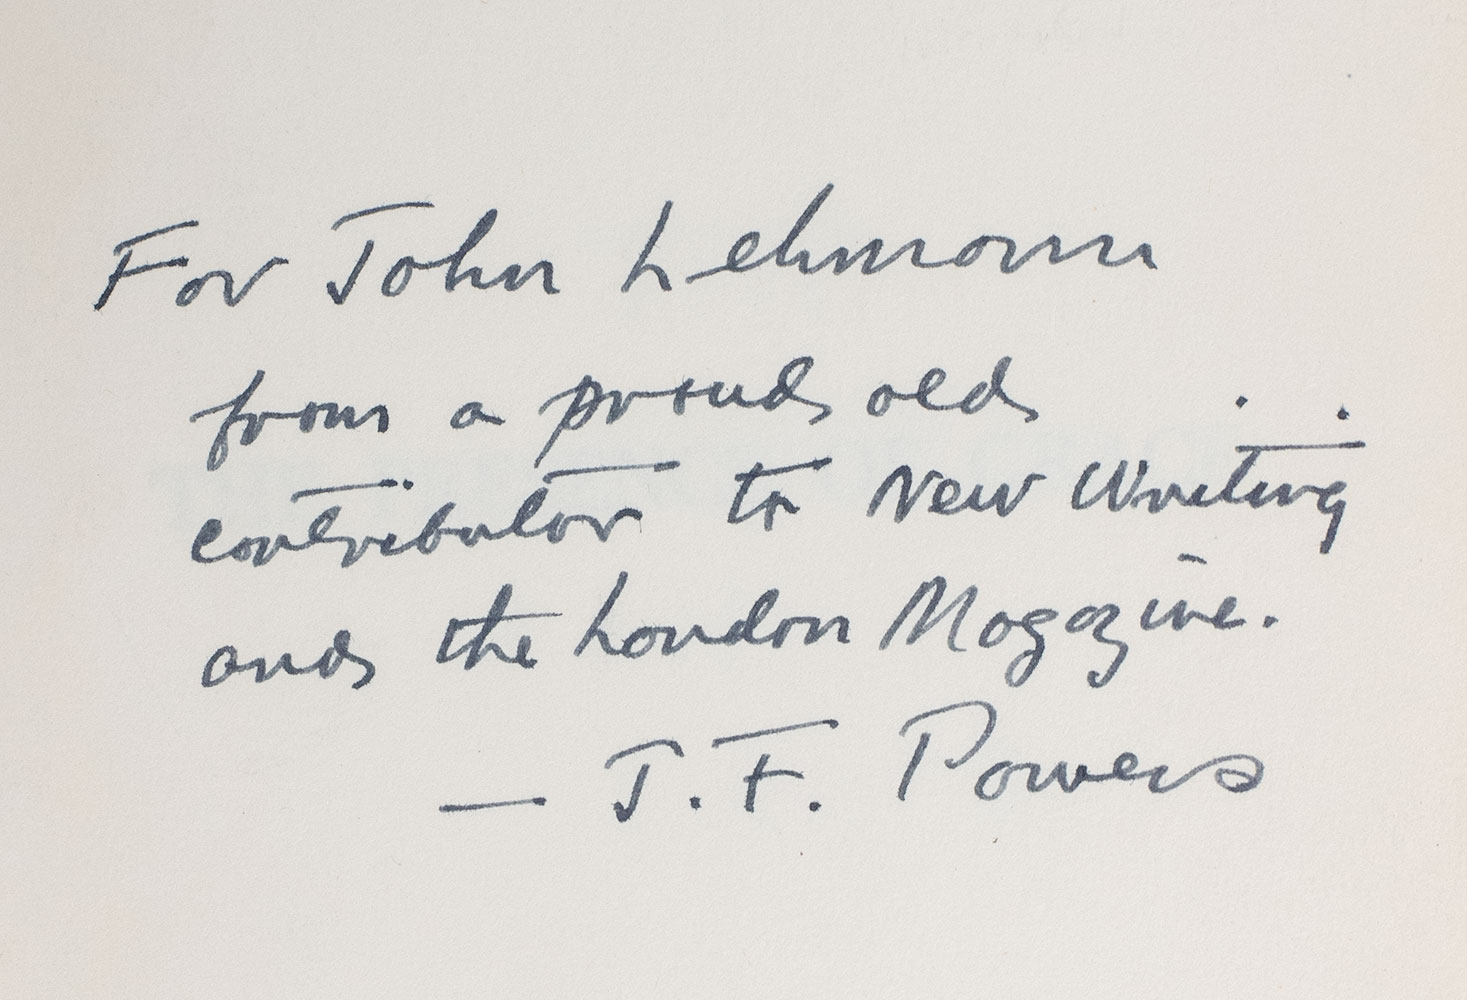 For John Lehmann
from a proud old
contributor to New Writing
and the London Magazine.
— J.F. Powers